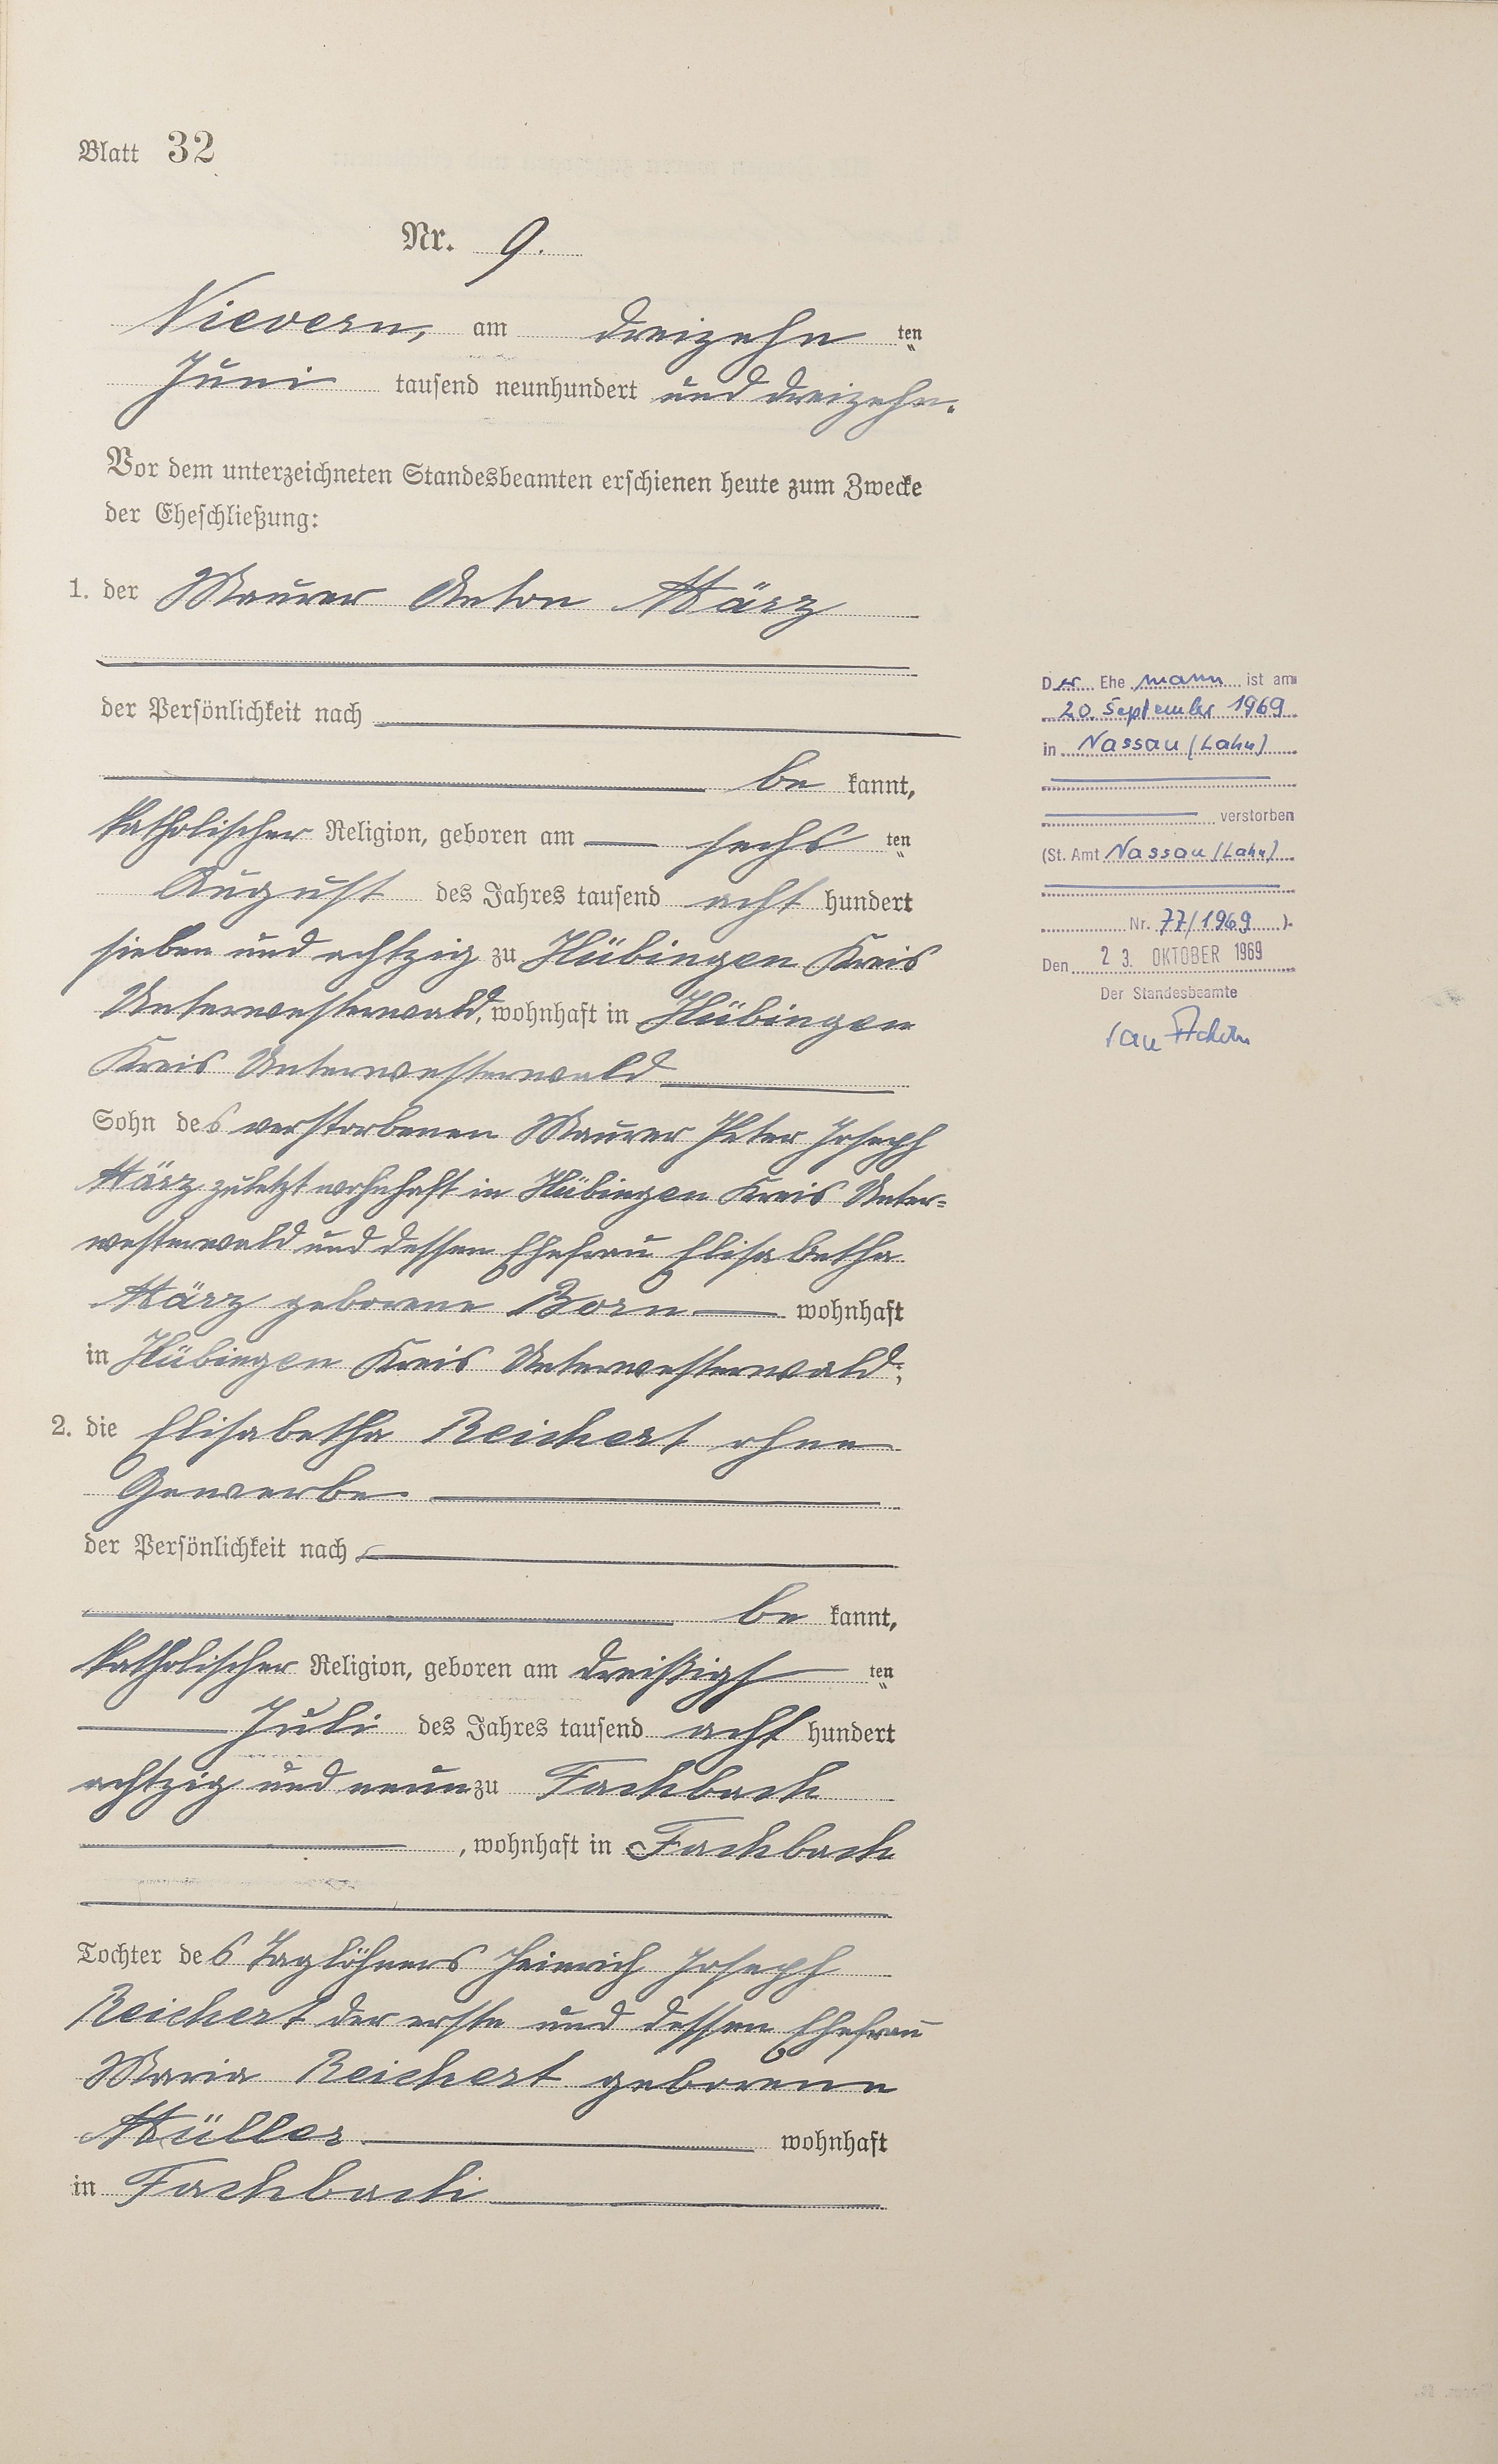 Blatt 32
Nr. 9.
Nievern, am dreizehn ten
Juni tausend neunhundert und dreizehn.
Vor dem unterzeichneten Standesbeamten erschienen heute zum Zwecke
der Eheschließung:
1. der Maurer Anton März
der Persönlichkeit nach
be kannt,
katholischer Religion, geboren am sechs ten
August des Jahres tausend acht hundert
sieben und achtzig zu Hübingen Kreis
Unterwesterwald, wohnhaft in Hübingen
Kreis Unterwesterwald
Sohn des verstorbenen Maurer Peter Joseph
März zuletzt wohnhaft in Hübingen Kreis Unter=
westerwald und dessen Ehefrau Elisabetha
März geborene Born wohnhaft
in Hübingen Kreis Unterwesterwald;
2. die Elisabetha Reichert ohne
Gewerbe
der Persönlichkeit nach
be kannt,
katholischer Religion, geboren am dreißigst ten
Juli des Jahres tausend acht hundert
achtzig und neun zu Fachbach
, wohnhaft in Fachbach
Tochter des Taglöhners Heinrich Joseph
Reichert der erste und dessen Ehefrau
Maria Reichert geborene
Müller wohnhaft
in Fachbach
Der Ehe mann ist am
20. September 1969
in Nassau (Lahn)
verstorben
(St. Amt Nassau (Lahn)
Nr. 77/1969 ).
Den 23. OKTOBER 1969
Der Standesbeamte